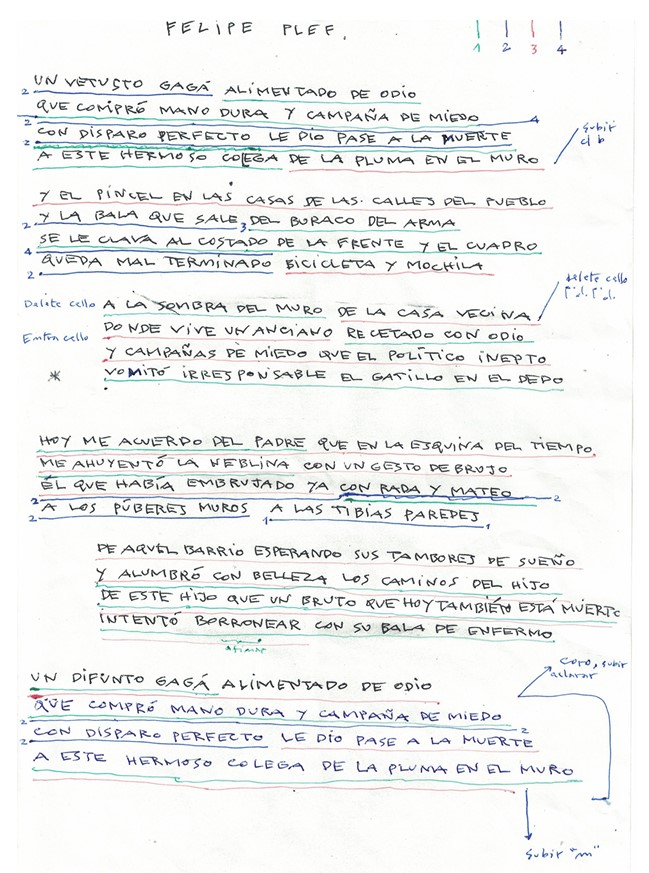 FELIPE PLEF.
1 2 3 4
UN VETUSTO GAGÁ ALIMENTADO DE ODIO
2 QUE COMPRÓ MANO DURA Y CAMPAÑA DE MIEDO
2 CON DISPARO PERFECTO LE DIO PASE A LA MUERTE 4
2 A ESTE HERMOSO COLEGA DE LA PLUMA EN EL MURO
subir
Y EL PINCEL EN LAS CASAS DE LAS CALLES DEL PUEBLO
2 Y LA BALA QUE SALE 3 DEL BURACO DEL ARMA
SE LE CLAVA AL COSTADO DE LA FRENTE Y EL CUADRO
4 2 QUEDA MAL TERMINADO BICICLETA Y MOCHILA
delete cello
Delete cello A LA SOMBRA DEL MURO DE LA CASA VECINA
Entra cello DONDE VIVE UN ANCIANO RECETADO CON ODIO
Y CAMPAÑAS DE MIEDO QUE EL POLÍTICO INEPTO
* VOMITÓ IRRESPONSABLE EL GATILLO EN EL DEDO
HOY ME ACUERDO DEL PADRE QUE EN LA ESQUINA DEL TIEMPO
ME AHUYENTÓ LA NEBLINA CON UN GESTO DE BRUJO
EL QUE HABÍA EMBRUJADO YA CON RADA Y MATEO
2 A LOS PÚBERES MUROS A LAS TIBIAS PAREDES 2
2 1 1
DE AQUEL BARRIO ESPERANDO SUS TAMBORES DE SUEÑO
Y ALUMBRÓ CON BELLEZA LOS CAMINOS DEL HIJO
DE ESTE HIJO QUE UN BRUTO QUE HOY TAMBIÉN ESTÁ MUERTO
INTENTÓ BORRONEAR CON SU BALA DE ENFERMO
afinar
coro, subir
aclarar
UN DIFUNTO GAGÁ ALIMENTADO DE ODIO
QUE COMPRÓ MANO DURA Y CAMPAÑA DE MIEDO
2 CON DISPARO PERFECTO LE DIO PASE A LA MUERTE 2
2 A ESTE HERMOSO COLEGA DE LA PLUMA EN EL MURO
subir "m"